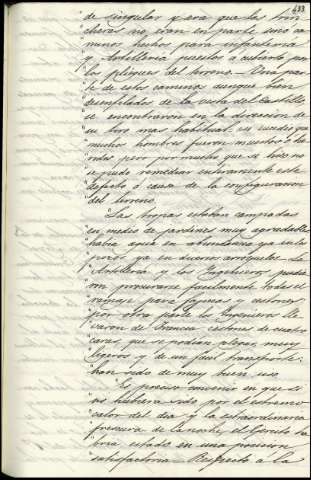 433
de singular y era que las trin
cheras no eran en parte sino ca
minos hechos para infanteria
y Artilleria puestos a cubierto por
los pliegues del terreno. Una par
te de estos caminos aunque bien
desenfilados de la vista del Castillo
se encontraron en la direccion de
su tiro mas habitual, asi sucedio que
muchos hombres fueron muertos ó he
ridos pero por mucho que se hizo no
se pudo remediar enteramente este
defecto á causa de la configuracion
del terreno.
Las tropas estaban campadas
en medio de jardines muy agradables
habia agua en abundancia ya en los
pozos ya en diversos arroyuelos. La
Artilleria y los Ingenieros pudie
ron procurarse facilmente todo el
ramaje para faginas y cestones
por otra parte los Ingenieros lle
varon de Francia cestones de cuatro
caras que se podian plegar, muy
ligeros y de un facil transporte;
han sido de muy buen uso.
Es preciso convenir en que se
as hubiera sido por el estremo
calor del dia y la estraordinaria
frescura de la noche, el Egercito ha
bria estado en una posicion
satisfactoria. Respecto á la